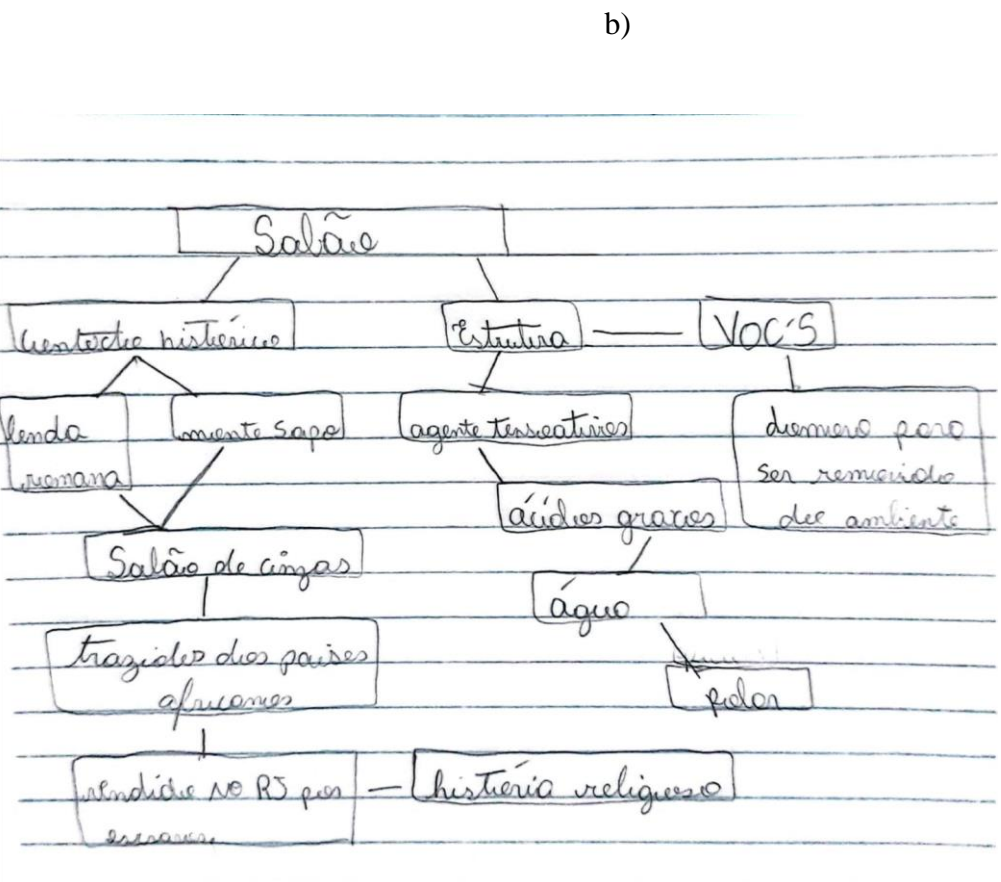 b)
Sabão
Contexto histórico
Estrutura
VOC'S
lenda
romana
monte Sapo
agente tensoativos
demora para
ser removido
do ambiente
ácidos graxos
Sabão de cinzas
água
trazidos dos países
africanos
polar
vendido no RJ por
história religiosa